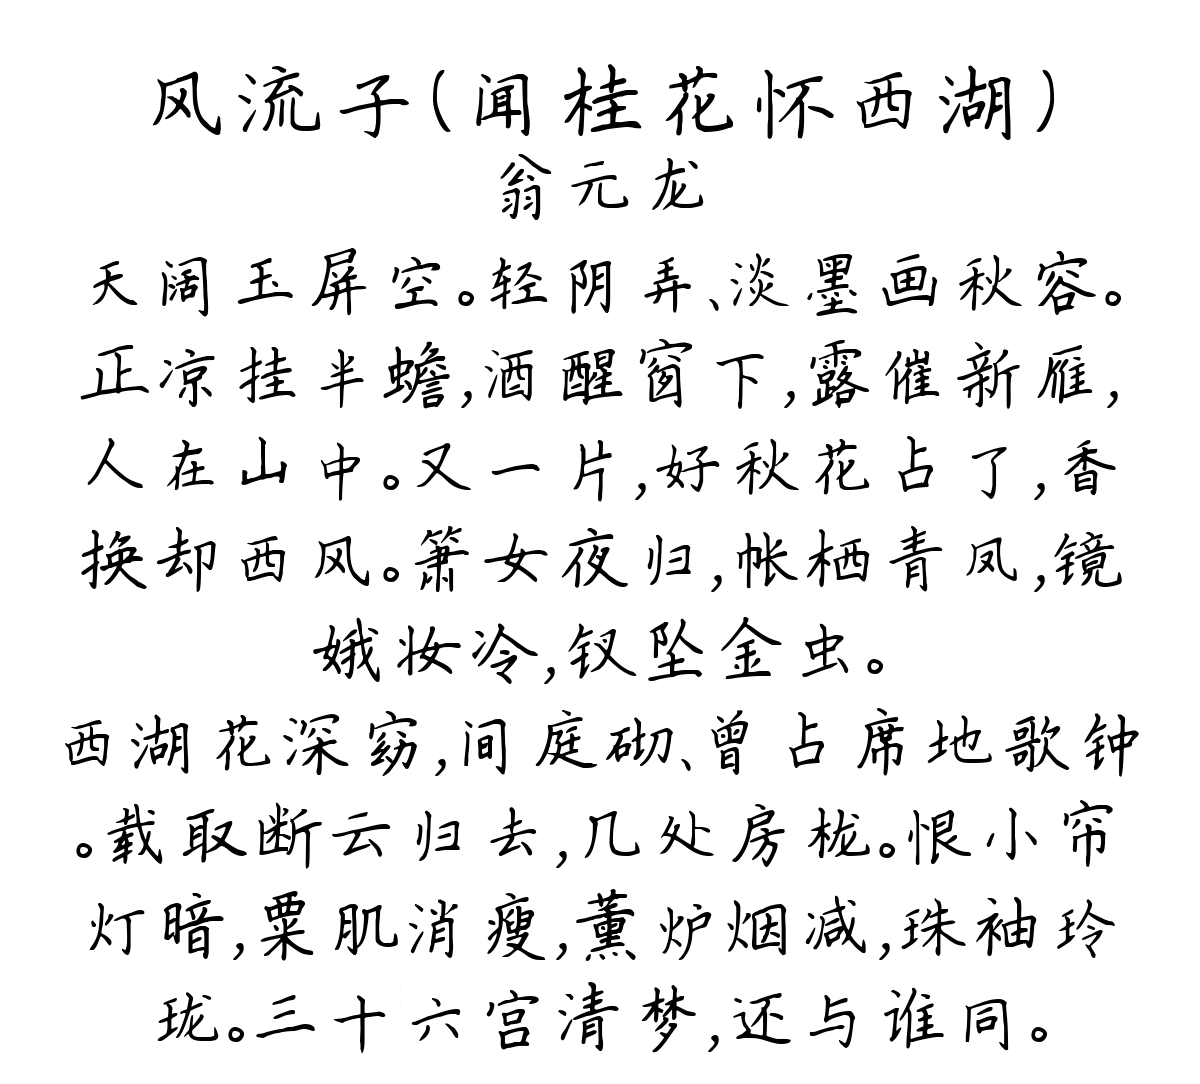 风流子(闻桂花怀西湖)
翁元龙
天阔玉屏空。轻阴弄、淡墨画秋容。
正凉挂半蟾,酒醒窗下,露催新雁,
人在山中。又一片,好秋花占了,香
换却西风。箫女夜归,帐栖青凤,镜
娥妆冷,钗坠金虫。
西湖花深窈,间庭砌、曾占席地歌钟
。载取断云归去,几处房栊。恨小帘
灯暗,粟肌消瘦,薰炉烟减,珠袖玲
珑。三十六宫清梦,还与谁同。